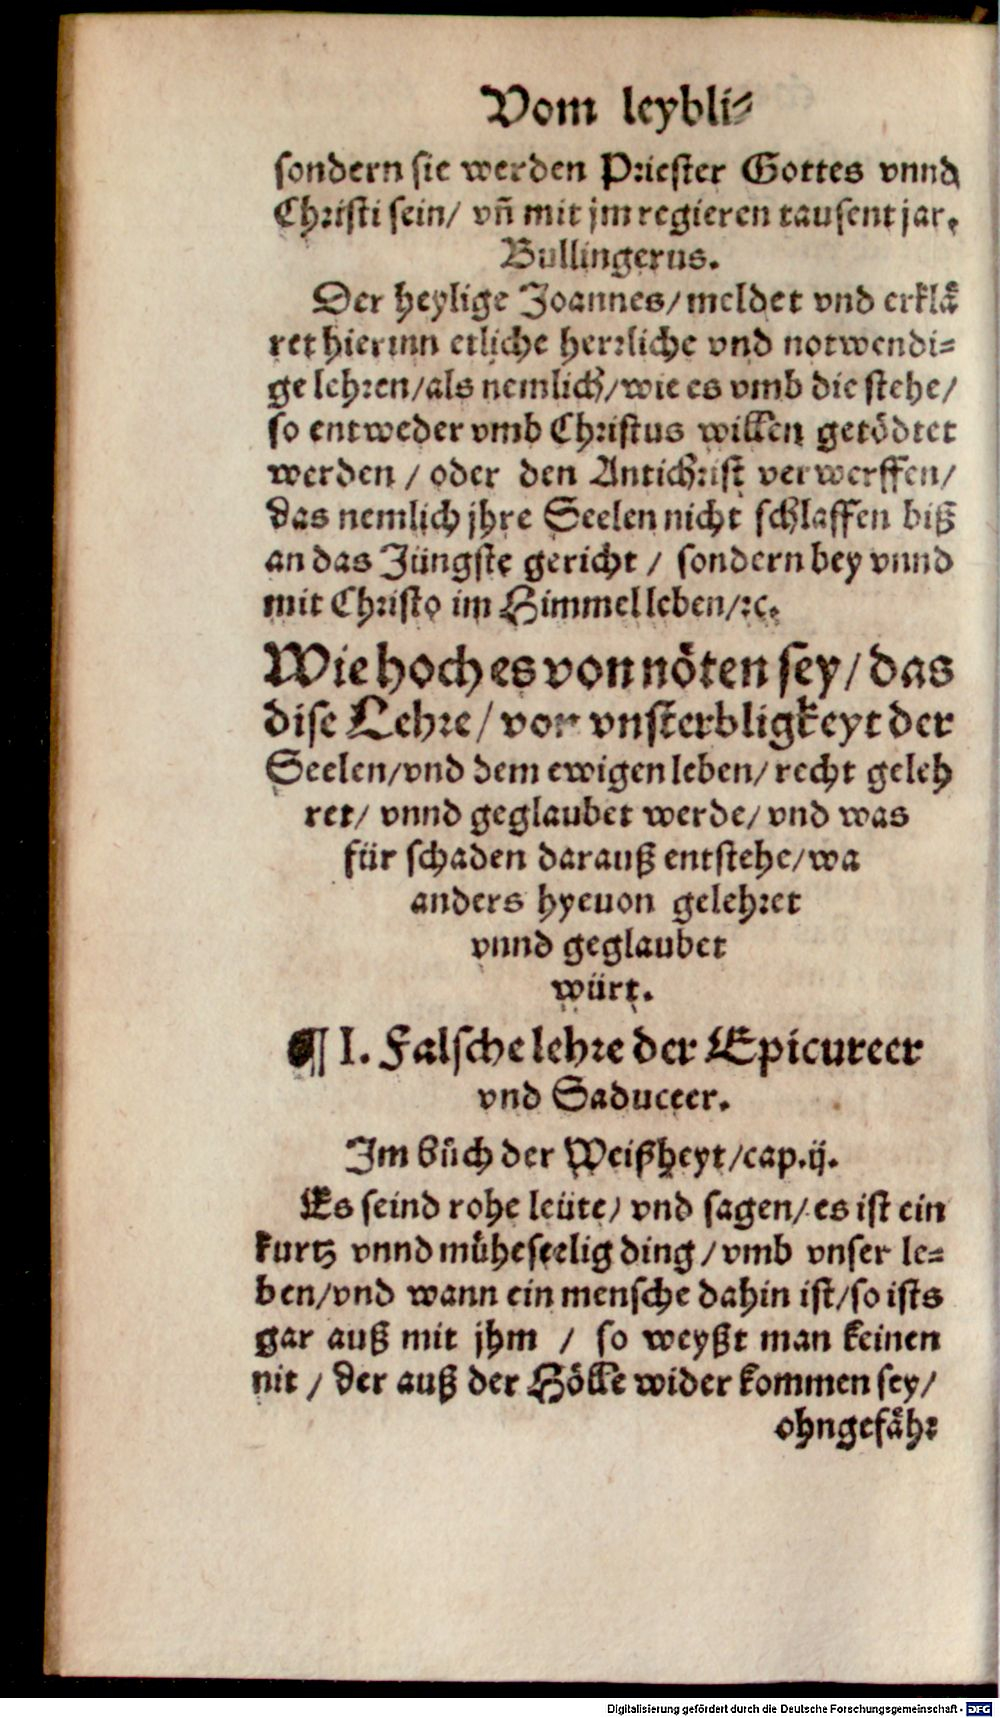 Vom leybli⸗
sondern sie werden Priester Gottes vnnd
Christi sein/ vñ mit jm regieren tausent jar.
Bullingerus.
Der heylige Joannes/ meldet vnd erklaͤ
ret hierinn etliche herrliche vnd notwendi⸗
ge lehren/ als nemlich/ wie es vmb die stehe/
so entweder vmb Christus willen getoͤdtet
werden / oder den Antichrist verwerffen/
das nemlich jhre Seelen nicht schlaffen biß
an das Jüngste gericht / sondern bey vnnd
mit Christo im Himmel leben/ ꝛc.
Wie hoch es von noͤten sey/ das
dise Lehre/ von vnsterbligkeyt der
Seelen/ vnd dem ewigen leben/ recht geleh
ret/ vnnd geglaubet werde/ vnd was
für schaden darauß entstehe/ wa
anders hyeuon gelehret
vnnd geglaubet
würt.
¶ I. Falsche lehre der Epicureer
vnd Saduceer.
Im bůch der Weißheyt/ cap.ij.
Es seind rohe leüte/ vnd sagen/ es ist ein
kurtz vnnd muͤheseelig ding / vmb vnser le⸗
ben/ vnd wann ein mensche dahin ist/ so ists
gar auß mit jhm / so weyßt man keinen
nit / der auß der Hoͤlle wider kommen sey/
ohngefaͤhr
Digitalisierung gefördert durch die Deutsche Forschungsgemeinschaft - DFG